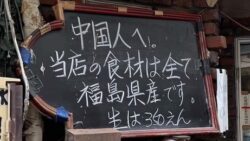 中国人へ。
・当店の食材は全て
福島県産です。
半は350えん